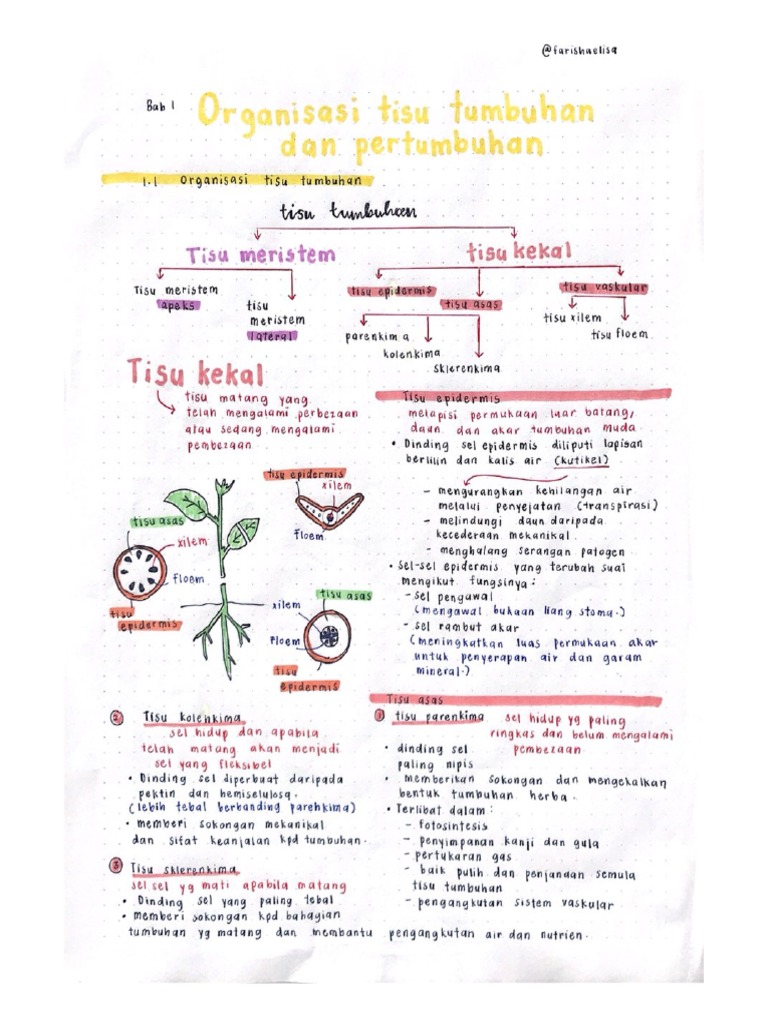 @farishaelisa
Bab 1
Organisasi tisu tumbuhan
dan pertumbuhan
1.1 Organisasi tisu tumbuhan
tisu tumbuhan
Tisu meristem
tisu kekal
Tisu meristem
apeks
tisu
meristem
lateral
tisu epidermis
tisu asas
tisu vaskular
parenkima
kolenkima
sklerenkima
tisu xilem
tisu floem
Tisu kekal
tisu matang yang
telah mengalami perbezaan
atau sedang mengalami
pembezaan
tisu epidermis
xilem
floem
tisu asas
xilem
floem
tisu
epidermis
tisu asas
xilem
floem
tisu
epidermis
Tisu epidermis
melapisi permukaan luar batang,
daun dan akar tumbuhan muda
• Dinding sel epidermis diliputi lapisan
berlilin dan kalis air (kutikel)
- mengurangkan kehilangan air
melalui penyejatan (transpirasi)
- melindungi daun daripada
kecederaan mekanikal
- menghalang serangan patogen
• Sel-sel epidermis yang terubah suai
mengikut fungsinya:
- sel pengawal
(mengawal bukaan liang stoma.)
- sel rambut akar
(meningkatkan luas permukaan akar
untuk penyerapan air dan garam
mineral.)
Tisu asas
① tisu parenkima sel hidup yg paling
ringkas dan belum mengalami
pembezaan
• dinding sel
paling nipis
• memberikan sokongan dan mengekalkan
bentuk tumbuhan herba.
• Terlibat dalam:
- fotosintesis
- penyimpanan kanji dan gula
- pertukaran gas
- baik pulih dan penjanaan semula
tisu tumbuhan
- pengangkutan sistem vaskular
② Tisu kolenkima
sel hidup dan apabila
telah matang akan menjadi
sel yang fleksibel
• Dinding sel diperbuat daripada
pektin dan hemiselulosa
(lebih tebal berbanding parenkima)
• memberi sokongan mekanikal
dan sifat keanjalan kpd tumbuhan.
③ Tisu sklerenkima
sel sel yg mati apabila matang
• Dinding sel yang paling tebal
• memberi sokongan kpd bahagian
tumbuhan yg matang dan membantu pengangkutan air dan nutrien.